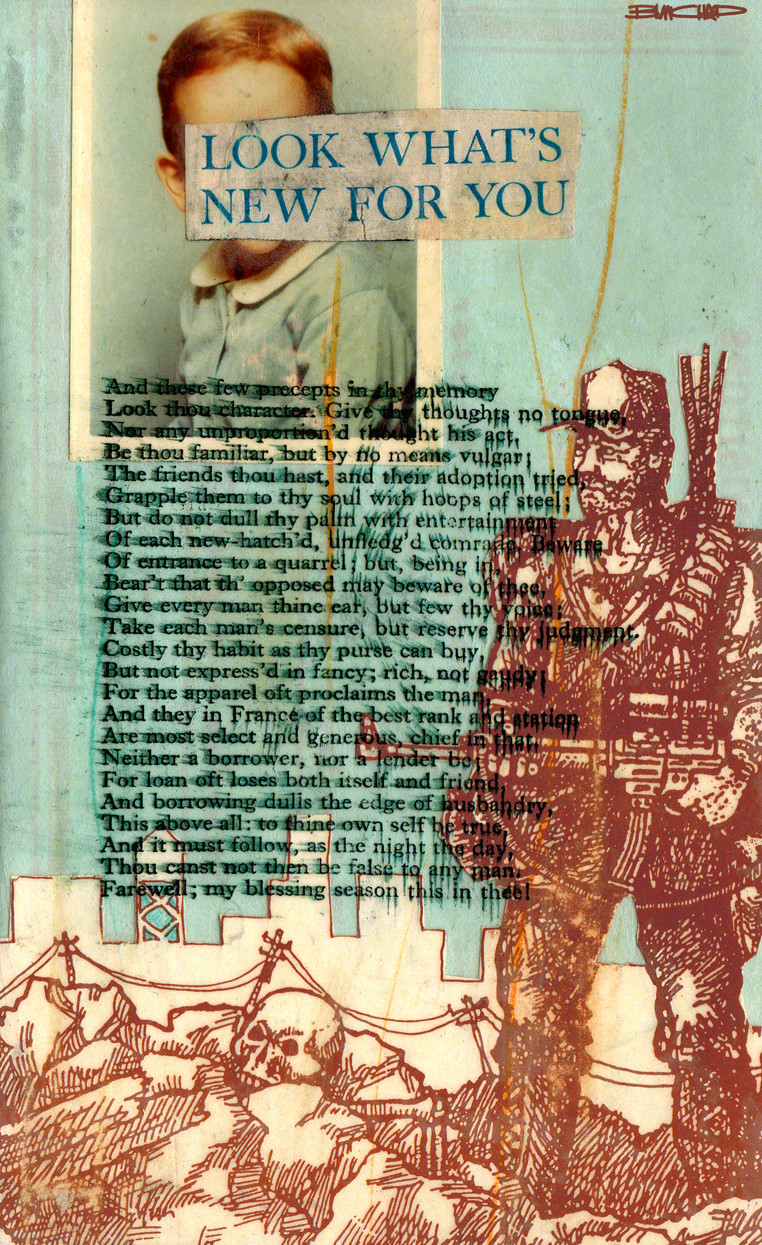 LOOK WHAT'S
NEW FOR YOU
And these few precepts in thy memory
Look thou character. Give thy thoughts no tongue,
Nor any unproportion'd thought his act.
Be thou familiar, but by no means vulgar;
The friends thou hast, and their adoption tried,
Grapple them to thy soul with hoops of steel;
But do not dull thy palm with entertainment
Of each new-hatch'd, unfledg'd comrade. Beware
Of entrance to a quarrel; but, being in,
Bear't that th' opposed may beware of thee.
Give every man thine ear, but few thy voice;
Take each man's censure, but reserve thy judgment.
Costly thy habit as thy purse can buy,
But not express'd in fancy; rich, not gaudy;
For the apparel oft proclaims the man,
And they in France of the best rank and station
Are most select and generous, chief in that.
Neither a borrower, nor a lender be;
For loan oft loses both itself and friend,
And borrowing dulls the edge of husbandry,
This above all: to thine own self be true,
And it must follow, as the night the day,
Thou canst not then be false to any man.
Farewell; my blessing season this in thee!